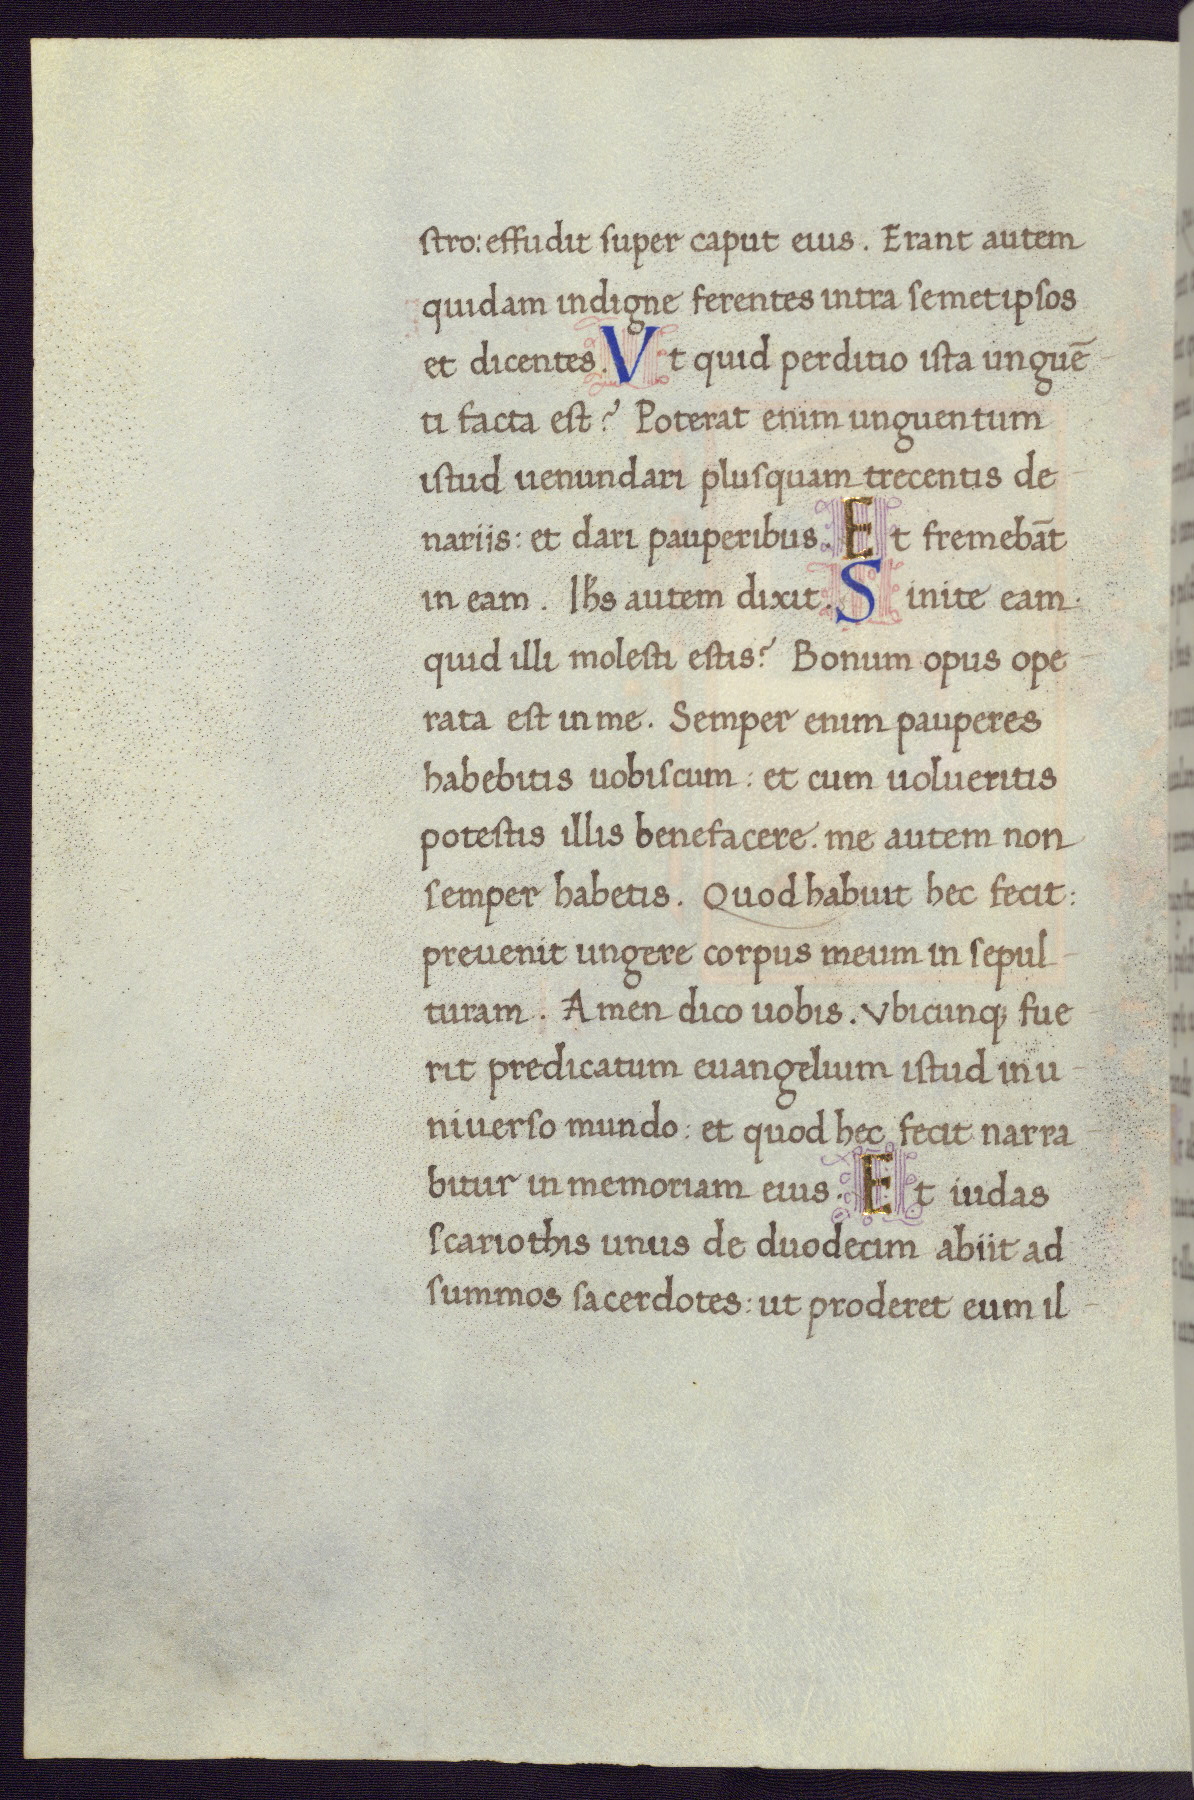 stro: effudit super caput eius. Erant autem
quidam indigne ferentes intra semetipsos
et dicentes. Vt quid perditio ista unguē
ti facta est? Poterat enim unguentum
istud uenundari plusquam trecentis de
nariis: et dari pauperibus. Et fremebāt
in eam. Ihs autem dixit. Sinite eam.
quid illi molesti estis? Bonum opus ope
rata est in me. Semper enim pauperes
habebitis uobiscum: et cum uolueritis
potestis illis benefacere. me autem non
semper habetis. Quod habuit hec fecit:
preuenit ungere corpus meum in sepul
turam. Amen dico uobis. Vbicunq; fue
rit predicatum euangelium istud in u
niuerso mundo: et quod hec fecit narra
bitur in memoriam eius. Et iudas
scariothis unus de duodecim abiit ad
summos sacerdotes: ut proderet eum il